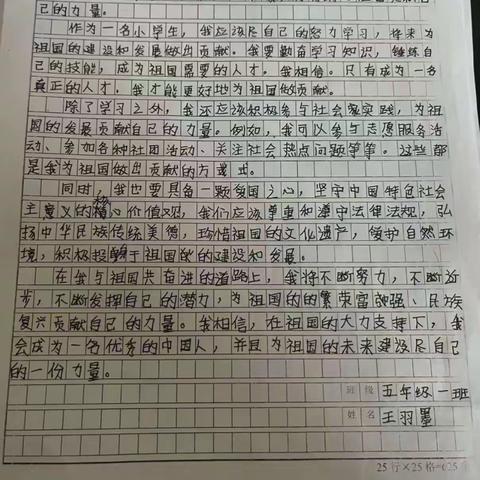 己的力量。
作为一名小学生，我应该尽自己的努力学习，将来为
祖国的建设和发展做出贡献。我要勤奋学习知识，锤练自
己的技能，成为祖国需要的人才。我相信。只有成为一名
真正的人才。我才能更好地为祖国做贡献。
除了学习之外，我还应该积极参与社会实践，为祖
国的发展贡献自己的力量。例如，我可以参与志愿服务活
动、参加各种社团活动、关注社会热点问题等等。这些都
是我为祖国做出贡献的方式。
同时，我也要具备一颗爱国之心，坚守中国特色社会
主义的核心价值观，我们应该尊重和遵守法律法规，弘
扬中华民族传统美德，珍惜祖国的文化遗产，爱护自然环
境，积极投身于祖国的建设和发展。
在我与祖国共奋进的道路上，我将不断努力，不断进
步，不断发挥自己的潜力，为祖国的的繁荣富强、民族
复兴贡献自己的力量。我相信，在祖国的大力支持下，我
会成为一名优秀的中国人，并且为祖国的未来建设尽自己
的一份力量。
班级 五年级一班
姓名 王羽墨
25行×25格=625